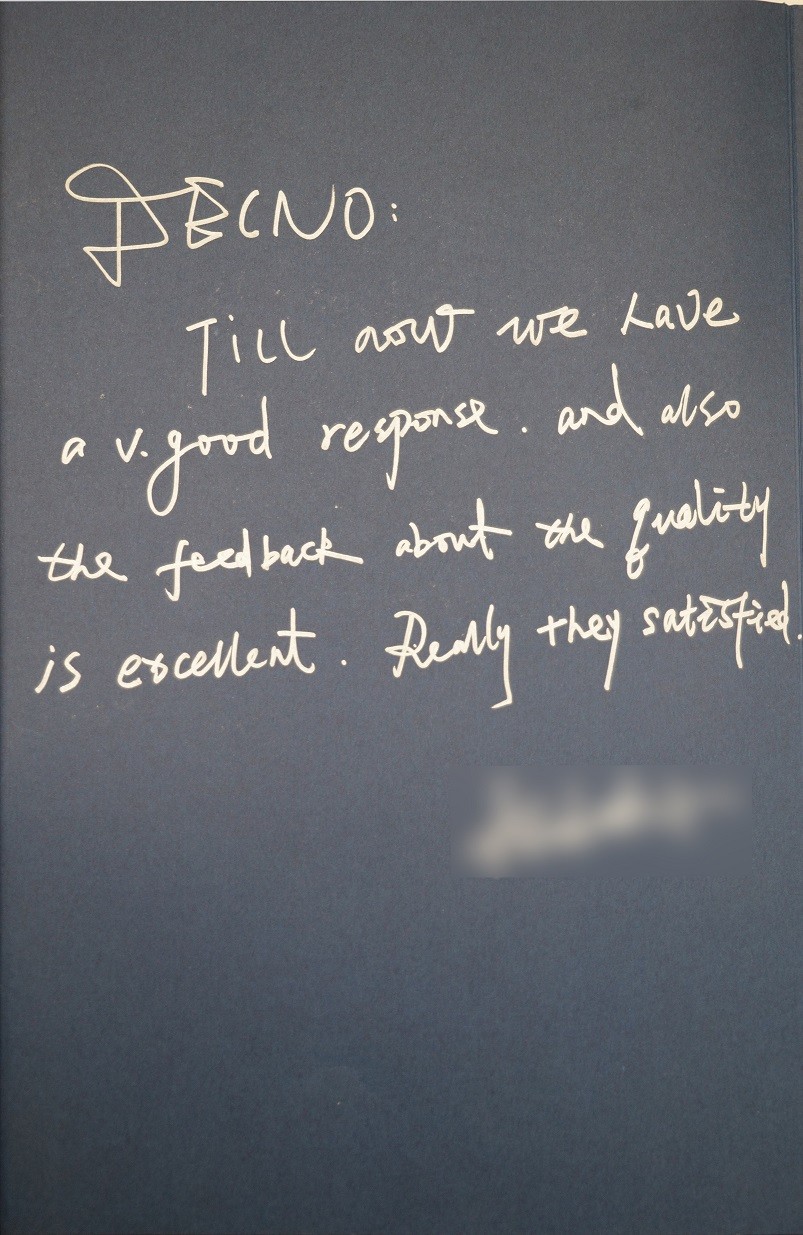 DECNO:
Till now we have
a v. good response. and also
the feedback about the quality
is excellent. Really they satisfied.